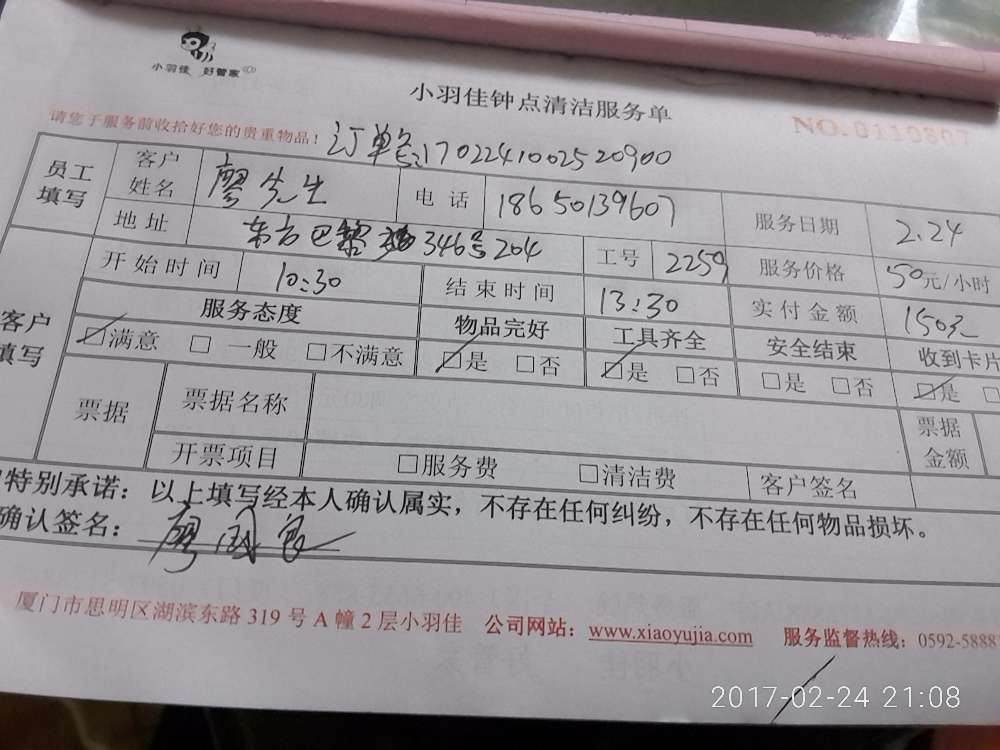 小羽佳 好管家
小羽佳钟点清洁服务单
NO.0110807
请您于服务前收拾好您的贵重物品！
订单号:1702241002520900
员工填写 客户姓名 廖先生 电话 18650139607 服务日期 2.24
地址 东方巴黎 346号204 工号 2259 服务价格 50元/小时
客户填写 开始时间 10:30 结束时间 13:30 实付金额 150元
服务态度 物品完好 工具齐全 安全结束 收到卡片
☑满意 □一般 □不满意 ☑是 □否 ☑是 □否 □是 □否 ☑是 □
票据 票据名称 票据金额
开票项目 □服务费 □清洁费 客户签名
特别承诺：以上填写经本人确认属实，不存在任何纠纷，不存在任何物品损坏。
确认签名：廖国良
厦门市思明区湖滨东路 319 号 A 幢 2 层小羽佳 公司网站：www.xiaoyujia.com 服务监督热线：0592-5888
2017-02-24 21:08